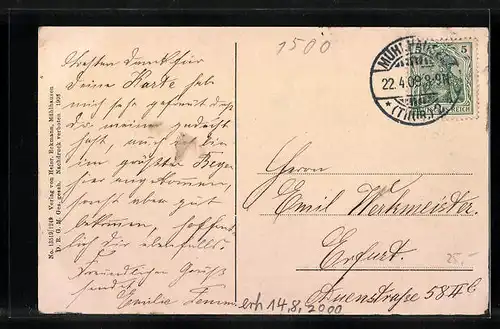 Besten Dank für
Deine Karte hab
mich sehr gefreut daß
Du meiner gedacht
hast, auch ich bin
im größten Regen
hier angekommen,
sonst aber gut
bekommen, hoffent
lich Dir ebenfalls.
Freundlichen Gruß
sendet
Emilie
No. 1249 Verlag von Heinr. Eckmann, Mühlhausen
D. R. G. M. Ges. gesch. Nachdruck verboten 1908
1500
MÜHLHAUSEN
22.4.09.8-9N.
* (THÜR.) 2
5
REICH
Herrn
Emil Werkmeister.
Erfurt.
Auenstraße 58 II
25,-
erh 14.8.2000